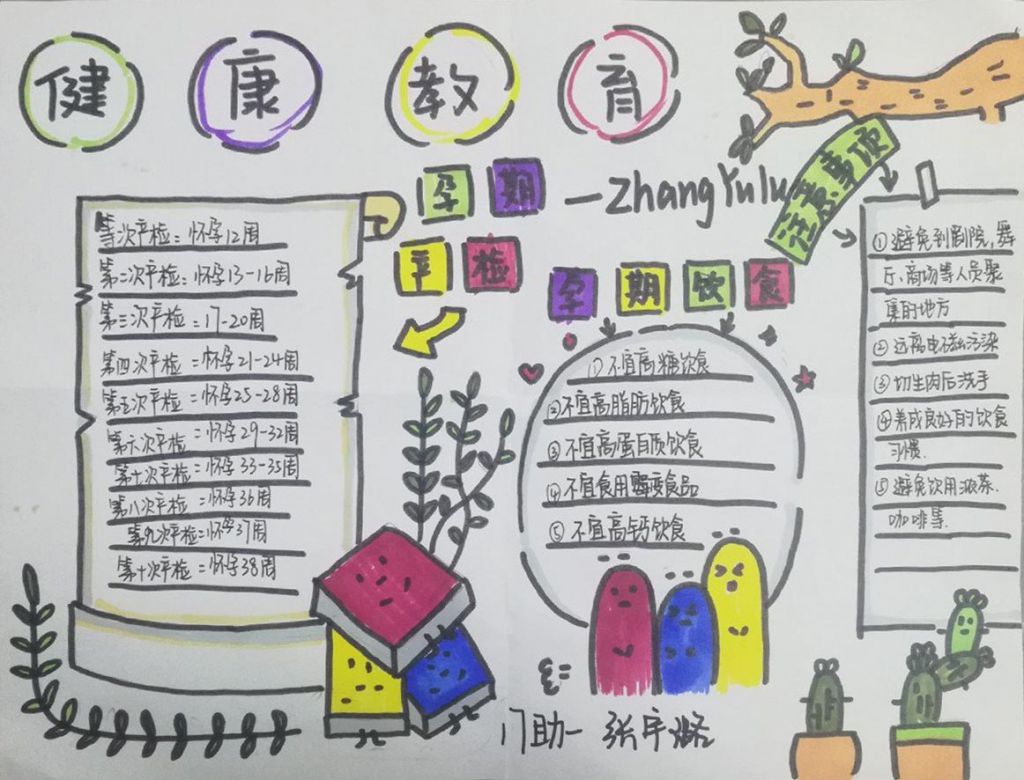 健康教育
孕期
产检
—ZhangYulu
注意事项
第一次产检：怀孕12周
第二次产检：怀孕13-16周
第三次产检：17-20周
第四次产检：怀孕21-24周
第五次产检=怀孕25-28周
第六次产检=怀孕29-32周
第七次产检=怀孕33-35周
第八次产检=怀孕36周
第九次产检=怀孕37周
第十次产检=怀孕38周
孕期饮食
①不宜高糖饮食
②不宜高脂肪饮食
③不宜高蛋白质饮食
④不宜食用霉变食品
⑤不宜高钙饮食
①避免到剧院,舞
厅、商场等人员聚
集的地方
②远离电磁污染
③切生肉后洗手
④养成良好的饮食
习惯.
⑤避免饮用浓茶.
咖啡等.
门助一 张宇